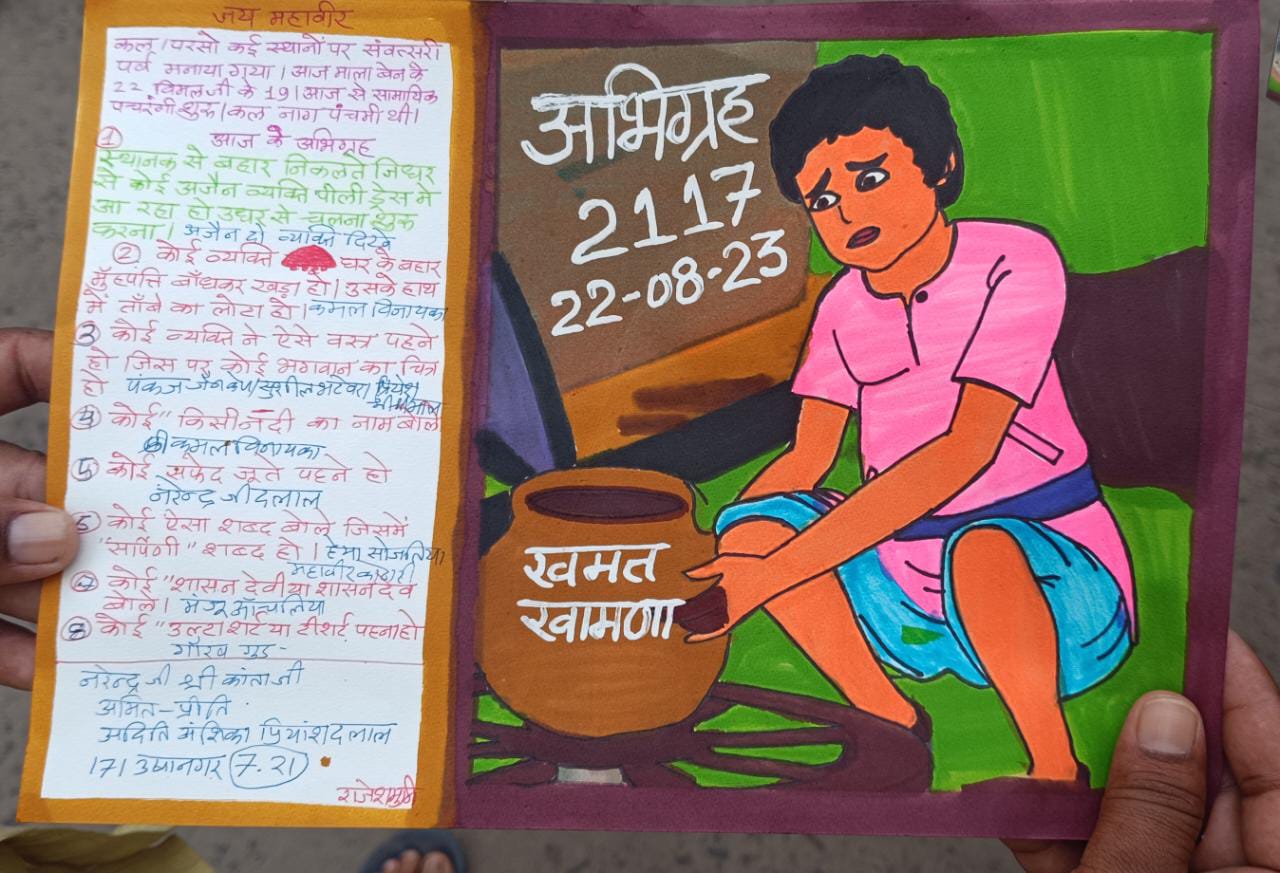 जय महावीर
कल/परसो कई स्थानों पर संवत्सरी
पर्व मनाया गया। आज माला बेन के
22 विमलजी के 19। आज से सामायिक
पचरंगी शुरू। कल नाग पंचमी थी।
① आज के अभिग्रह
स्थानक से बहार निकलते जिधर
से कोई अजैन व्यक्ति पीली ड्रेस मे
आ रहा हो उधर से चलना शुरू
करना। अजैन दो व्यक्ति दिखे
② कोई व्यक्ति घर के बहार
मुँहपत्ति बाँधकर खड़ा हो। उसके हाथ
में ताँबे का लोटा हो। कमल विनायका
③ कोई व्यक्ति ने ऐसे वस्त्र पहने
हो जिस पर कोई भगवान का चित्र
हो पंकज जैन सुशील भटेवरा प्रियेश
④ कोई" किसी नदी का नाम बोले
श्री कमल विनायका
⑤ कोई सफेद जूते पहने हो
नरेन्द्र जी दलाल
⑤ कोई ऐसा शब्द बोले जिसमें
"सर्पिणी" शब्द हो। हेमा सोजतिया
महावीर कोठारी
कोई "शासन देवी या शासनदेव
बोले।
⑧ कोई "उल्टा शर्ट या टीशर्ट पहना हो
गौरव
नरेन्द्र जी श्री कांता जी
अमित-प्रीति
अदिति मंशिका प्रियांश दलाल
171 उषानगर 7.21
राजेशमुनि
अभिग्रह
2117
22-08-23
खमत
खामणा